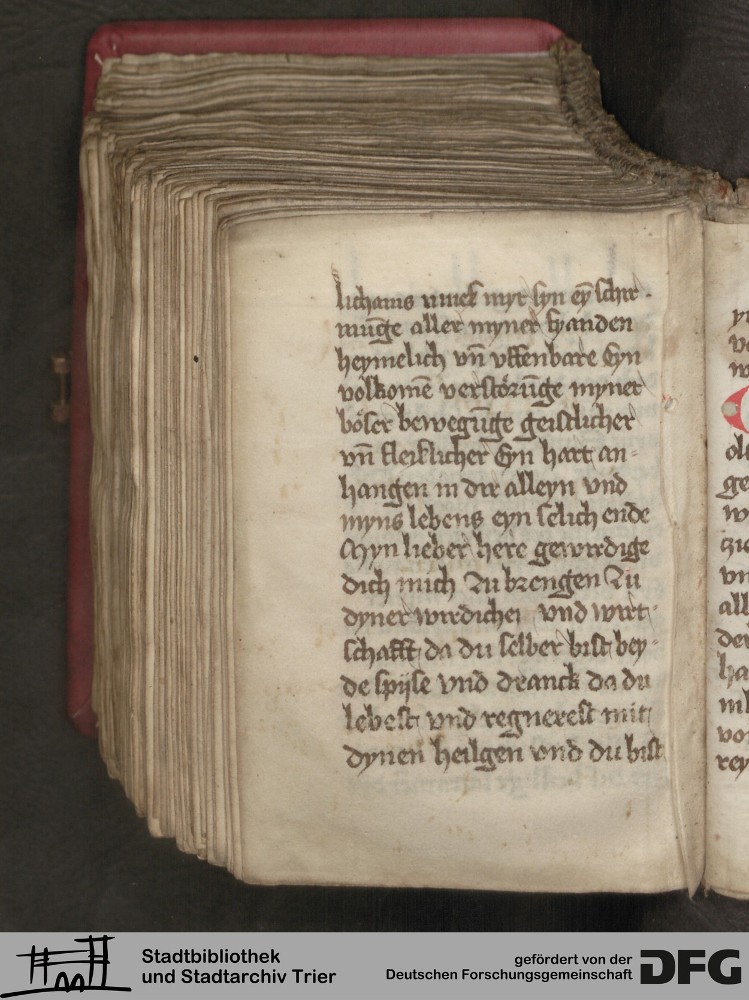 lichams muesz myr syn eȳ schir-
mūge aller myner fyanden
heymelich vn̄ vffenbare Eyn
volkomē verstörūge myner
böser bewegūge geistlicher
vn̄ fleislicher Eyn hart an-
hangen in dir alleyn vnd
myns lebens eyn selich ende
Myn lieber here gewirdige
dich mich zu brengen zu
dyner wirdichei vnd wirt-
schafft da du selber bist bey-
de spijse vnd dranck da du
lebest vnd regnerest mit
dynen heilgen vnd du bist
Stadtbibliothek
und Stadtarchiv Trier
gefördert von der
Deutschen Forschungsgemeinschaft
DFG